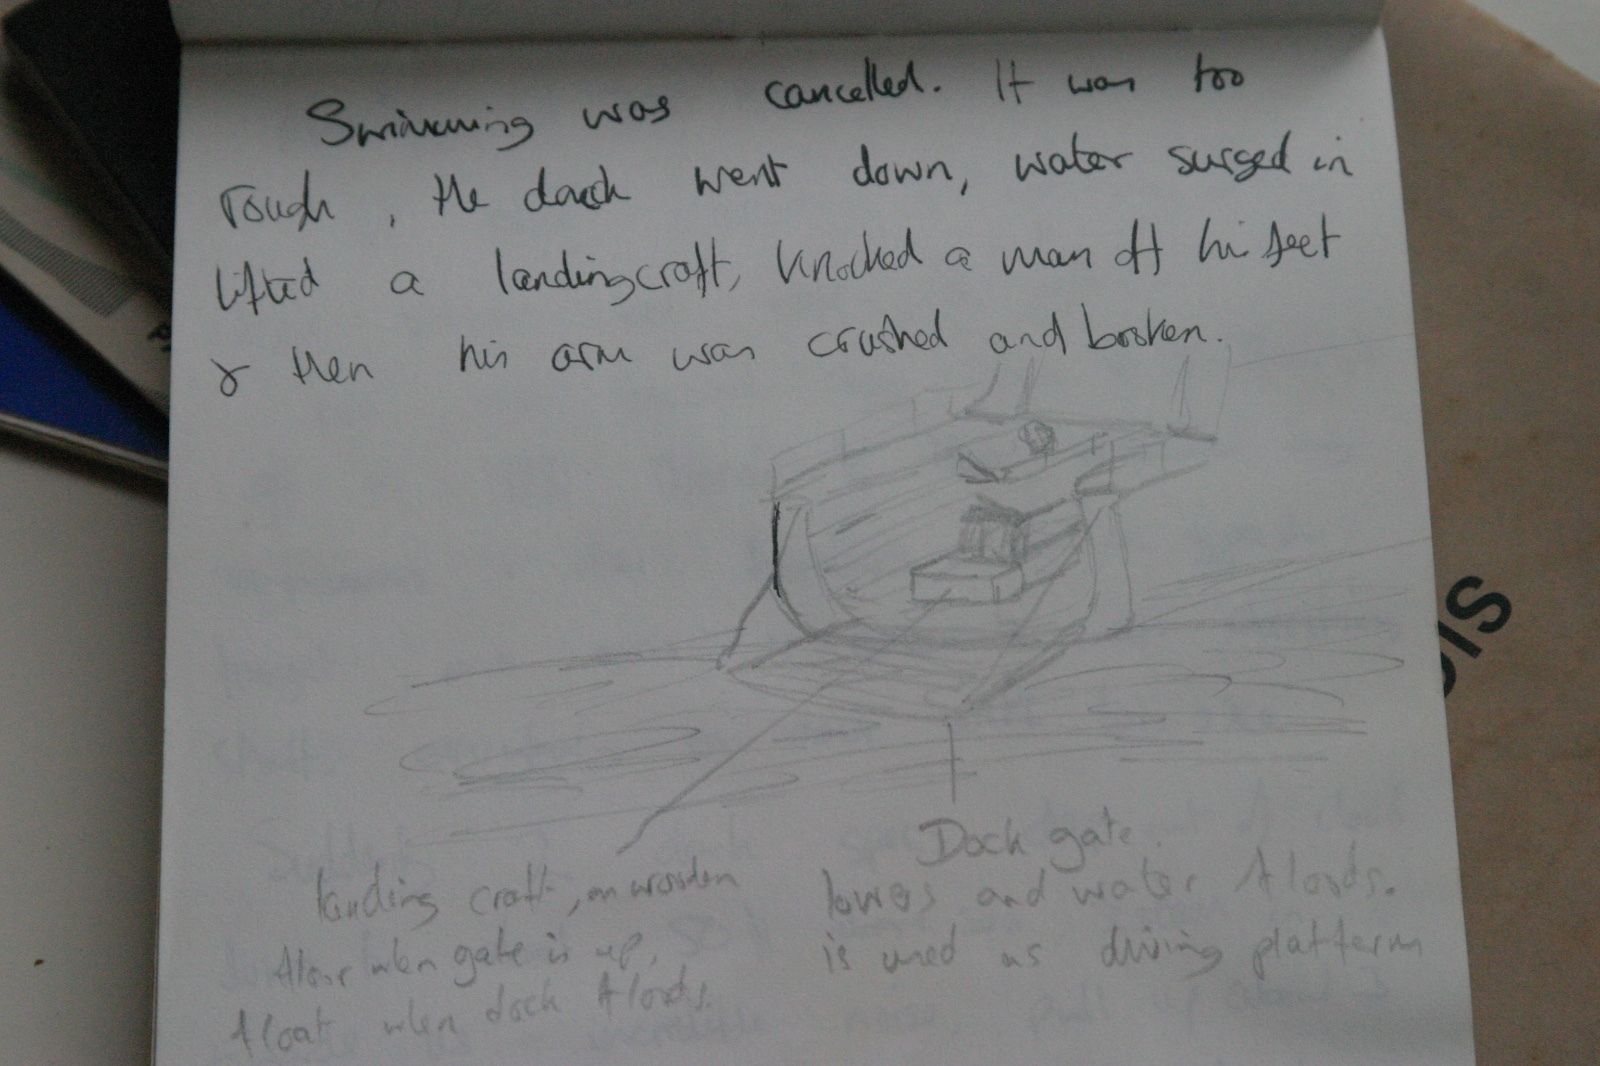 Swimming was cancelled. It was too
rough, the dock went down, water surged in
lifted a landingcraft, knocked a man off his feet
& then his arm was crushed and broken.
Dock gate.
lowers and water floods.
is used as diving platform
landing craft, on wooden
floor when gate is up,
float when dock floods.
SIS